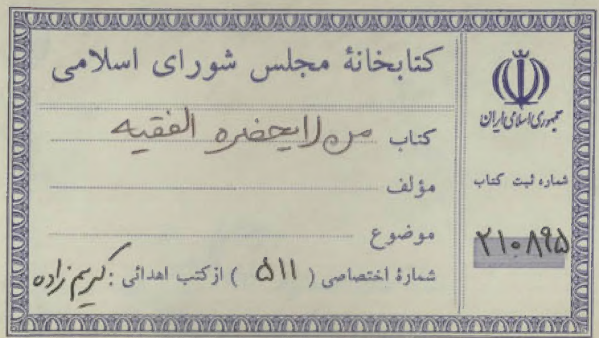 کتابخانهٔ مجلس شورای اسلامی
کتاب من لایحضره الفقیه
مؤلف
موضوع
شمارهٔ اختصاصی ( ۵۱۱ ) از کتب اهدائی : کریم زاده
جمهوری اسلامی ایران
شماره ثبت کتاب
۲۱۰۸۹۵